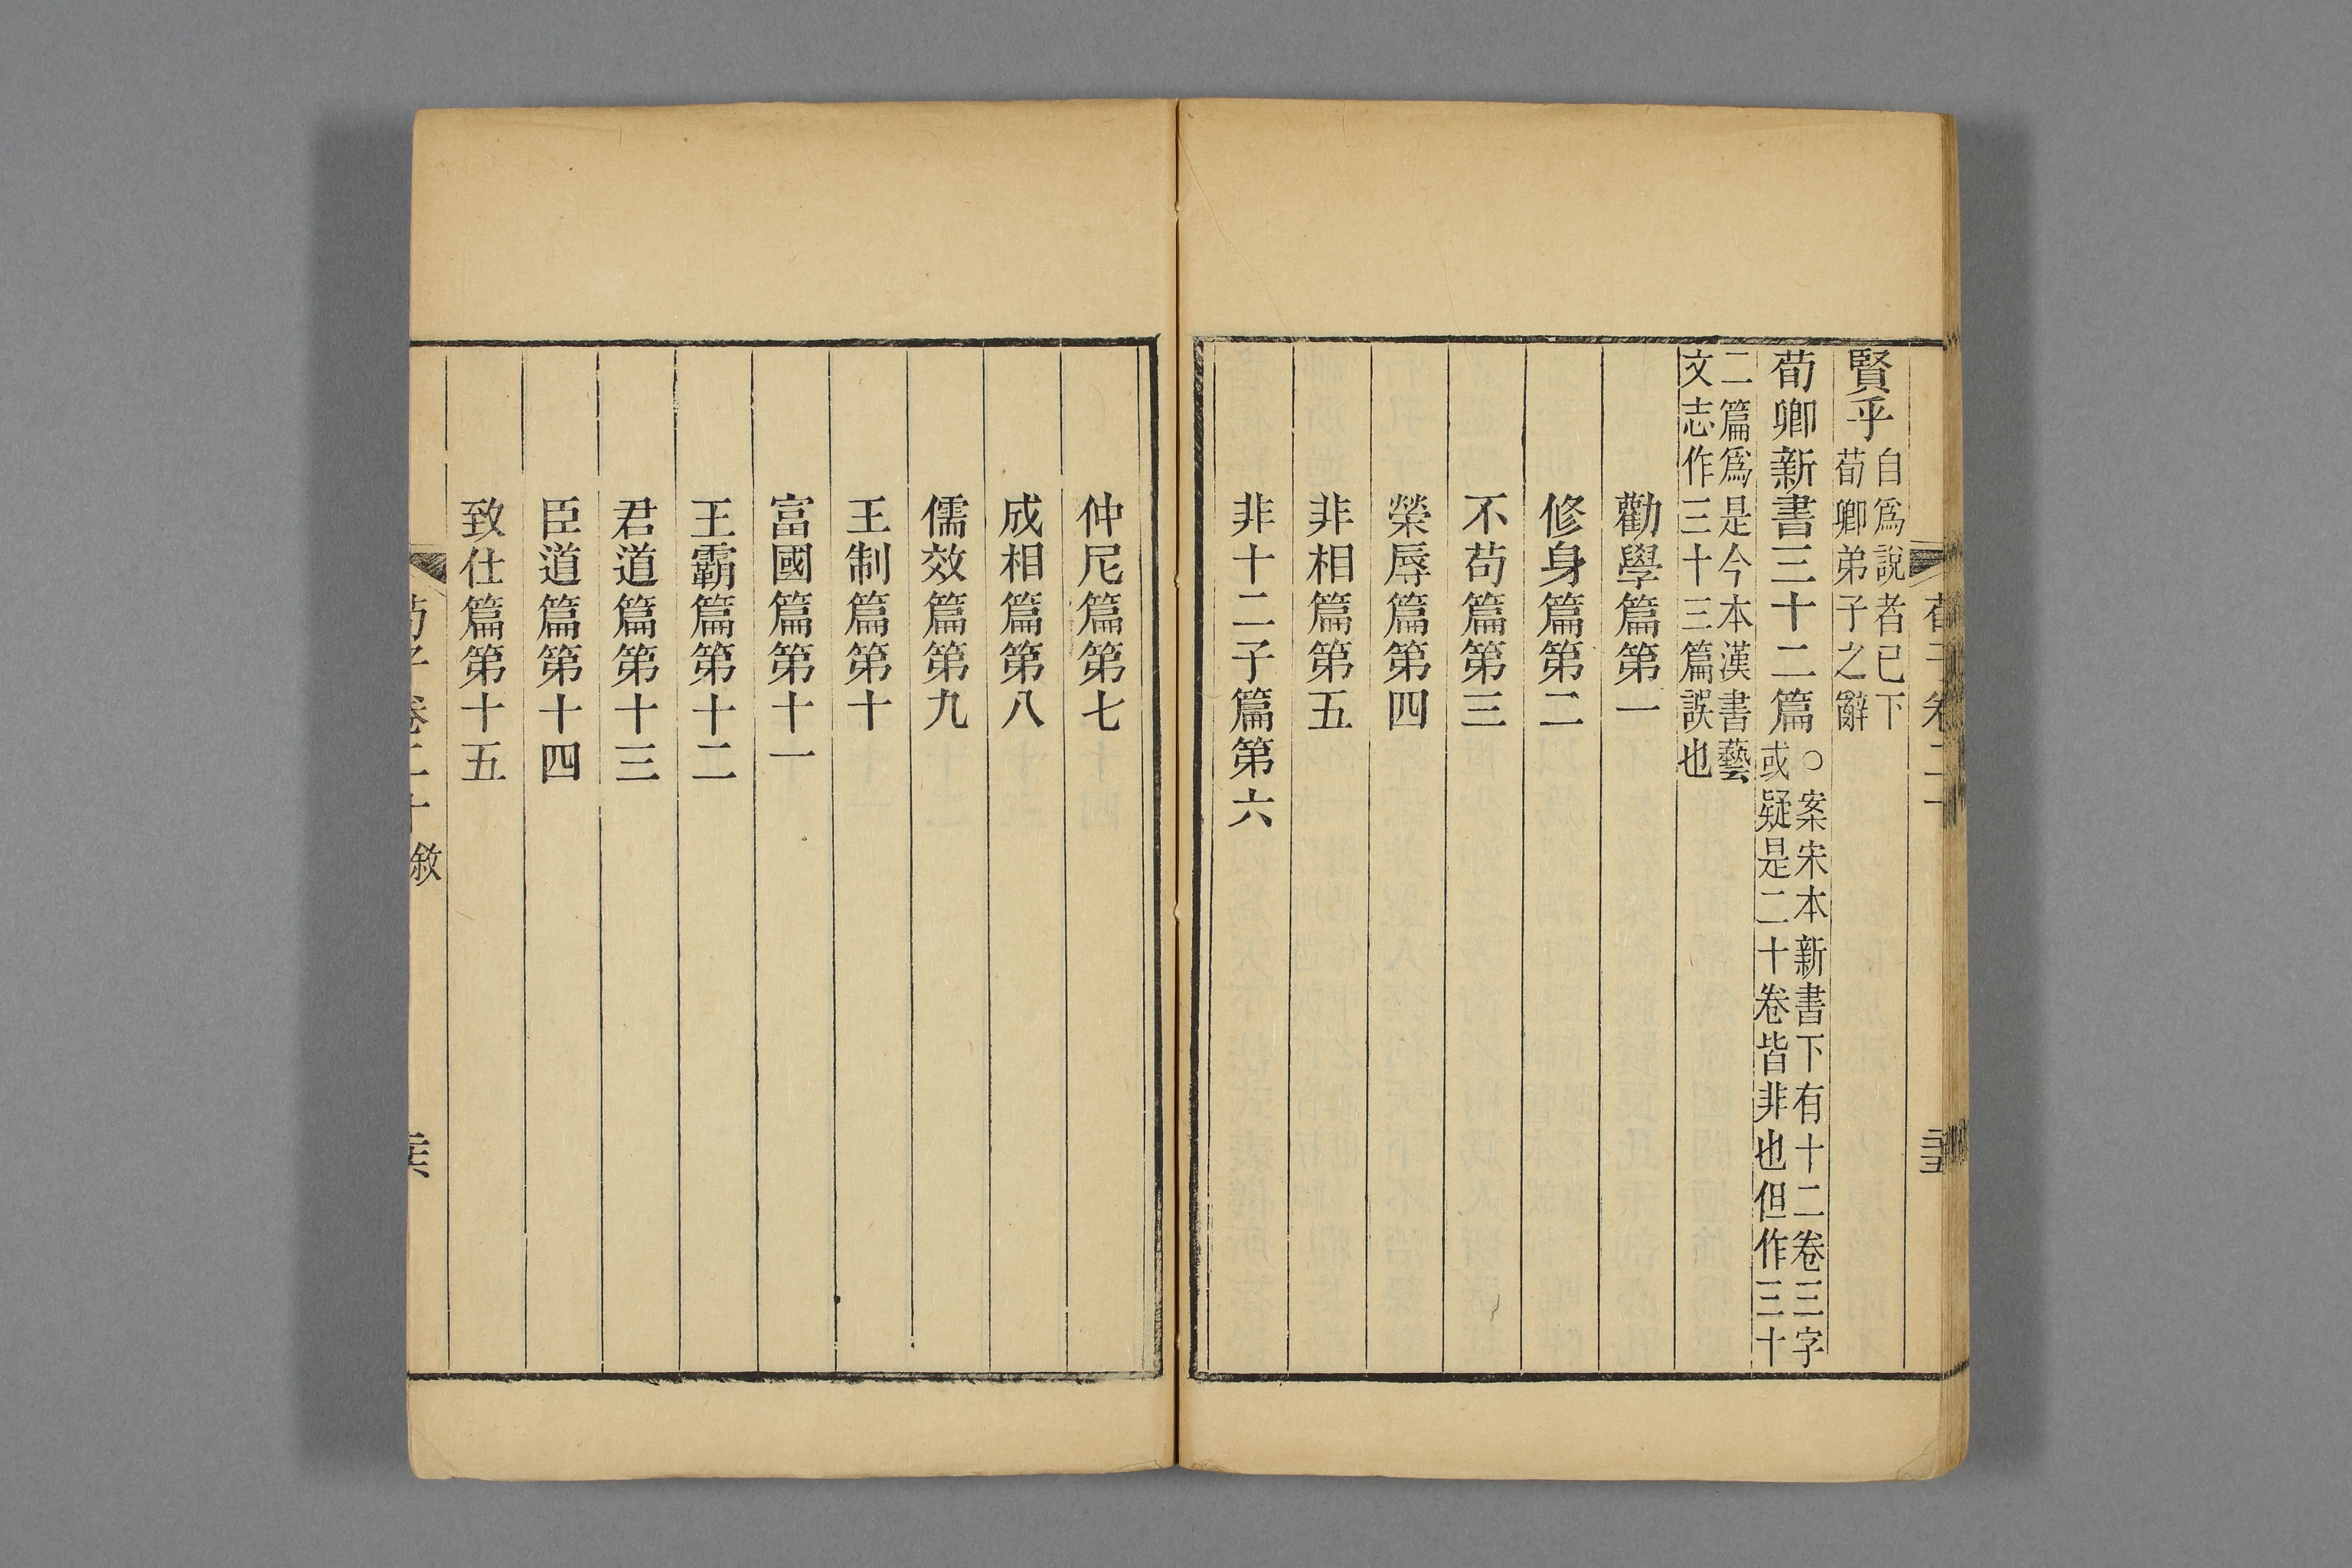 賢乎
自爲說者已下
荀卿弟子之辭
荀卿新書三十二篇
○案宋本新書下有十二卷三字
或疑是二十卷皆非也但作三十
二篇爲是今本漢書藝
文志作三十三篇誤也
勸學篇第一
修身篇第二
不苟篇第三
榮辱篇第四
非相篇第五
非十二子篇第六
仲尼篇第七
成相篇第八
儒效篇第九
王制篇第十
富國篇第十一
王霸篇第十二
君道篇第十三
臣道篇第十四
致仕篇第十五
荀子卷二十 敘